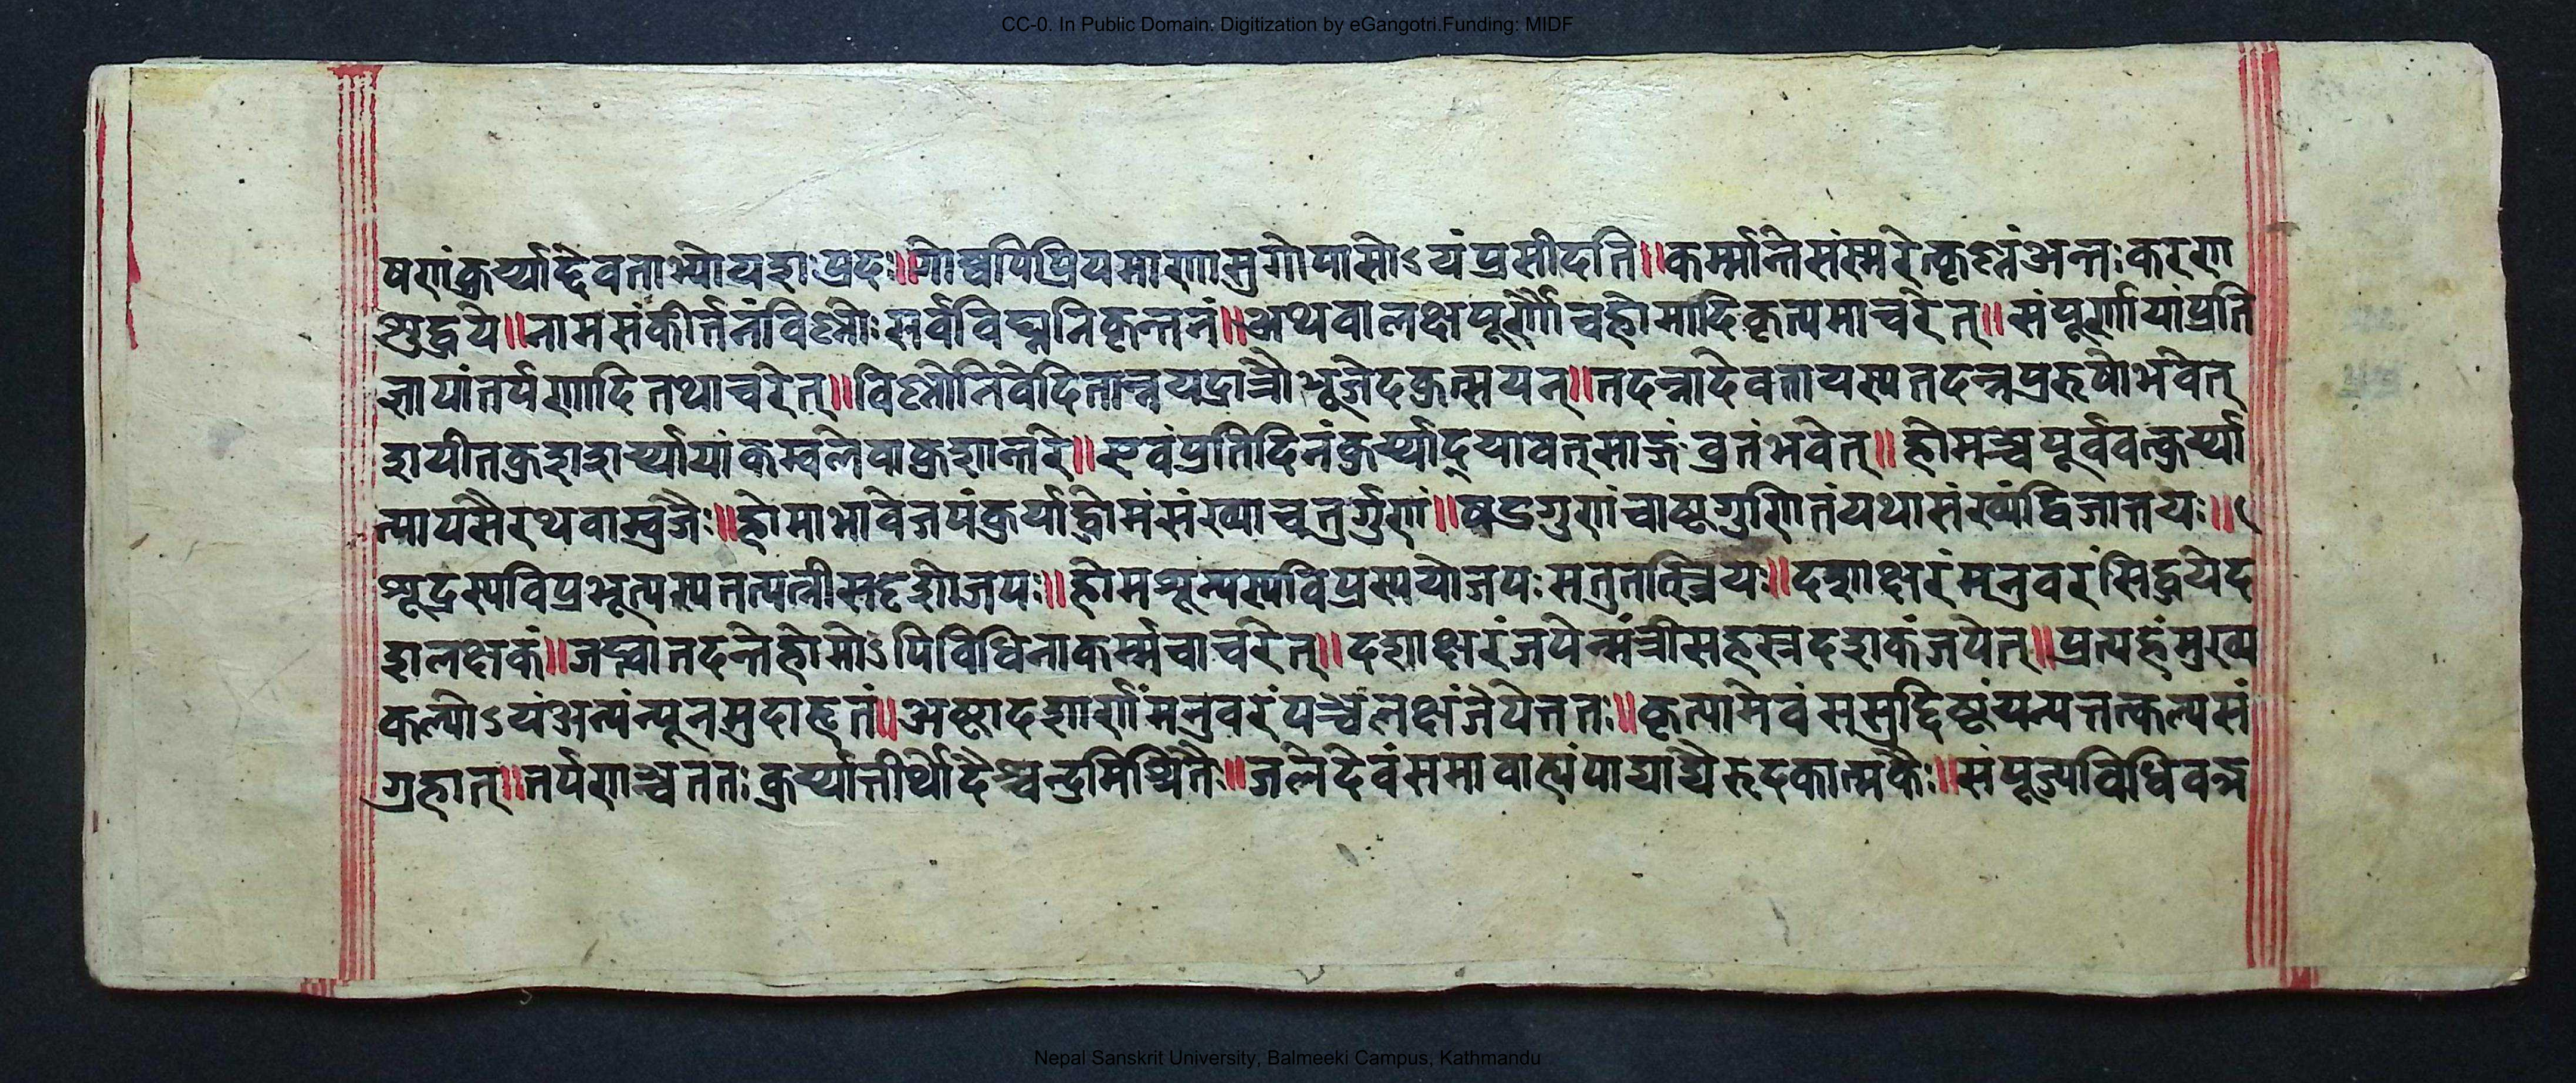 CC-0. In Public Domain. Digitization by eGangotri.Funding: MIDF
षणंकुर्य्याद्देवताभ्योयशःप्रदः॥गोष्वपिप्रियमाणासुगोपासोऽयंप्रसीदति॥कर्म्मान्तेसंस्मरेत्कृष्णंअन्तःकरण
शुद्धये॥नामसंकीर्त्तनंविष्णोःसर्वविघ्ननिकृन्तनं॥अथवालक्षपूर्णौचहोमादिकृत्यमाचरेत्॥संपूर्णायांप्रति
ज्ञायांतर्पणादितथाचरेत्॥विष्णोनिवेदितान्नयद्रात्रौभूजेदकुत्सयन्॥तदन्नादेवतायस्यतदन्नपुरुषोभवेत्
शयीतकुशशर्य्यायांकम्वलेवाकुशान्तरे॥एवंप्रतिदिनंकुर्य्याद्यावत्साङ्गंव्रतंभवेत्॥होमञ्चपूर्ववत्कुर्य्या
त्पायसैरथवास्वुजैः॥होमाभावेजपंकुर्याद्धोमंसंख्याचतुर्गुणं॥षड्गुणंचाष्टगुणितंयथासंख्यंद्विजातयः॥
शूद्रस्यविप्रभृत्यस्यतत्पत्नीसदृशोजपः॥होमशून्यस्यविप्रस्ययोजपःसतुतत्स्त्रियः॥दशाक्षरंमनुवरंसिद्धयेद
शलक्षकं॥जप्त्वातदन्तेहोमोऽपिविधिनाकर्म्मचाचरेत्॥दशाक्षरंजपेन्मंत्रीसहस्रदशकंजपेत्॥प्रत्यहंमुख्य
कल्पोऽयंअत्यंन्यूनमुदाहृतं॥अष्टादशार्णंमनुवरंपञ्चलक्षंजपेत्ततः॥कृत्यामेवंसमुद्दिष्टंयत्यत्तत्कल्पसं
ग्रहात्॥तर्पणाञ्चततःकुर्य्यात्तीर्थोदैश्चन्द्रमिश्रितैः॥जलेदेवंसमावाह्यंपाद्याद्यैरुदकात्मकैः॥संपूज्यविधिवन्न
Nepal Sanskrit University, Balmeeki Campus, Kathmandu